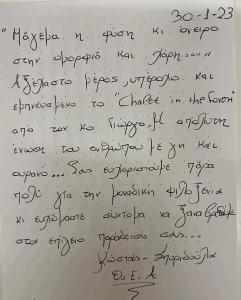 30-1-23
"Μάγεμα η φύση κι όνειρο
στην ομορφιά και χάρη....."
Αξέχαστο μέρος, υπέροχο και
εμπνευσμένο το "Chalet in the forest"
από τον κο Γιώργο. Η απόλυτη
ένωση του ανθρώπου με γη και
ουρανό... Σας ευχαριστούμε πάρα
πολύ για την μοναδική φιλοξενία
κι ευχόμαστε σύντομα να ξαναβρεθούμε
στον επίγειο παράδεισό σας...
Κώστας - Σπυριδούλα